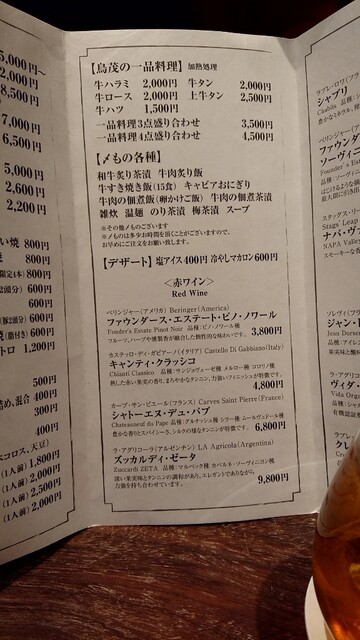 5,000円〜
2,000円
8,500円
7,000円
6,500円
5,000円
2,600円
2,200円
い焼 800円
800円
800円
600円
600円
600円
600円
トロ 1,200円
500円
400円
300円
(1人前) 1,800円
(1人前) 2,000円
(1人前) 2,500円
(1人前) 2,000円
【鳥茂の一品料理】 加熱処理
牛ハラミ 2,000円 牛タン 2,000円
牛ロース 2,000円 上牛タン 2,500円
牛ハツ 1,500円
一品料理3点盛り合わせ 3,500円
一品料理4点盛り合わせ 4,500円
【〆もの各種】
和牛炙り茶漬 牛肉炙り飯
牛すき焼き飯(15食) キャビアおにぎり
牛肉の佃煮飯(卵かけご飯) 牛肉の佃煮茶漬
雑炊 温麺 のり茶漬 梅茶漬 スープ
※その他〆ものございます
※〆ものは多少お時間を頂くことがございますので、
お早めにご注文をお願い致します。
【デザート】 塩アイス400円 冷やしマカロン600円
<赤ワイン>
Red Wine
ベリンジャー(アメリカ) Beringer(America)
ファウンダース・エステート・ピノ・ノワール
Founder's Estate Pinot Noir 品種:ピノ・ノワール種
3,800円
カステッロ・ディ・ガビアーノ(イタリア) Castello Di Gabbiano(Italy)
キャンティ・クラッシコ
Chianti Classico 品種:サンジョヴェーゼ種 メルロー種 コロリノ種
熟した赤い果実の香り、まろやかなタンニン、力強いフィニッシュが特徴です。
4,800円
カーブ・サン・ピエール(フランス) Carves Saint Pierre(France)
シャトーエヌ・デュ・パプ
Chateauneuf du Pape 品種:グルナッシュ種 シラー種 ムールヴェードル種
豊かな香りとスパイシーさ、シルクの様なタンニンが特徴です。
6,800円
ラ・アグリコーラ(アルゼンチン) LA Agricola(Argentina)
ズッカルディ・ゼータ
Zuccardi ZETA 品種:マルベック種 カベルネ・ソーヴィニヨン種
深い果実味とタンニンの調和があり、エレガントでありながら、
力強を持ち合わせています。
9,800円
シャブリ
ファウンダ
ソーヴィニ
ナパ・ヴァ
NAPA Valley
ジャン・
ヴィダ・
Vida Orga
クレ